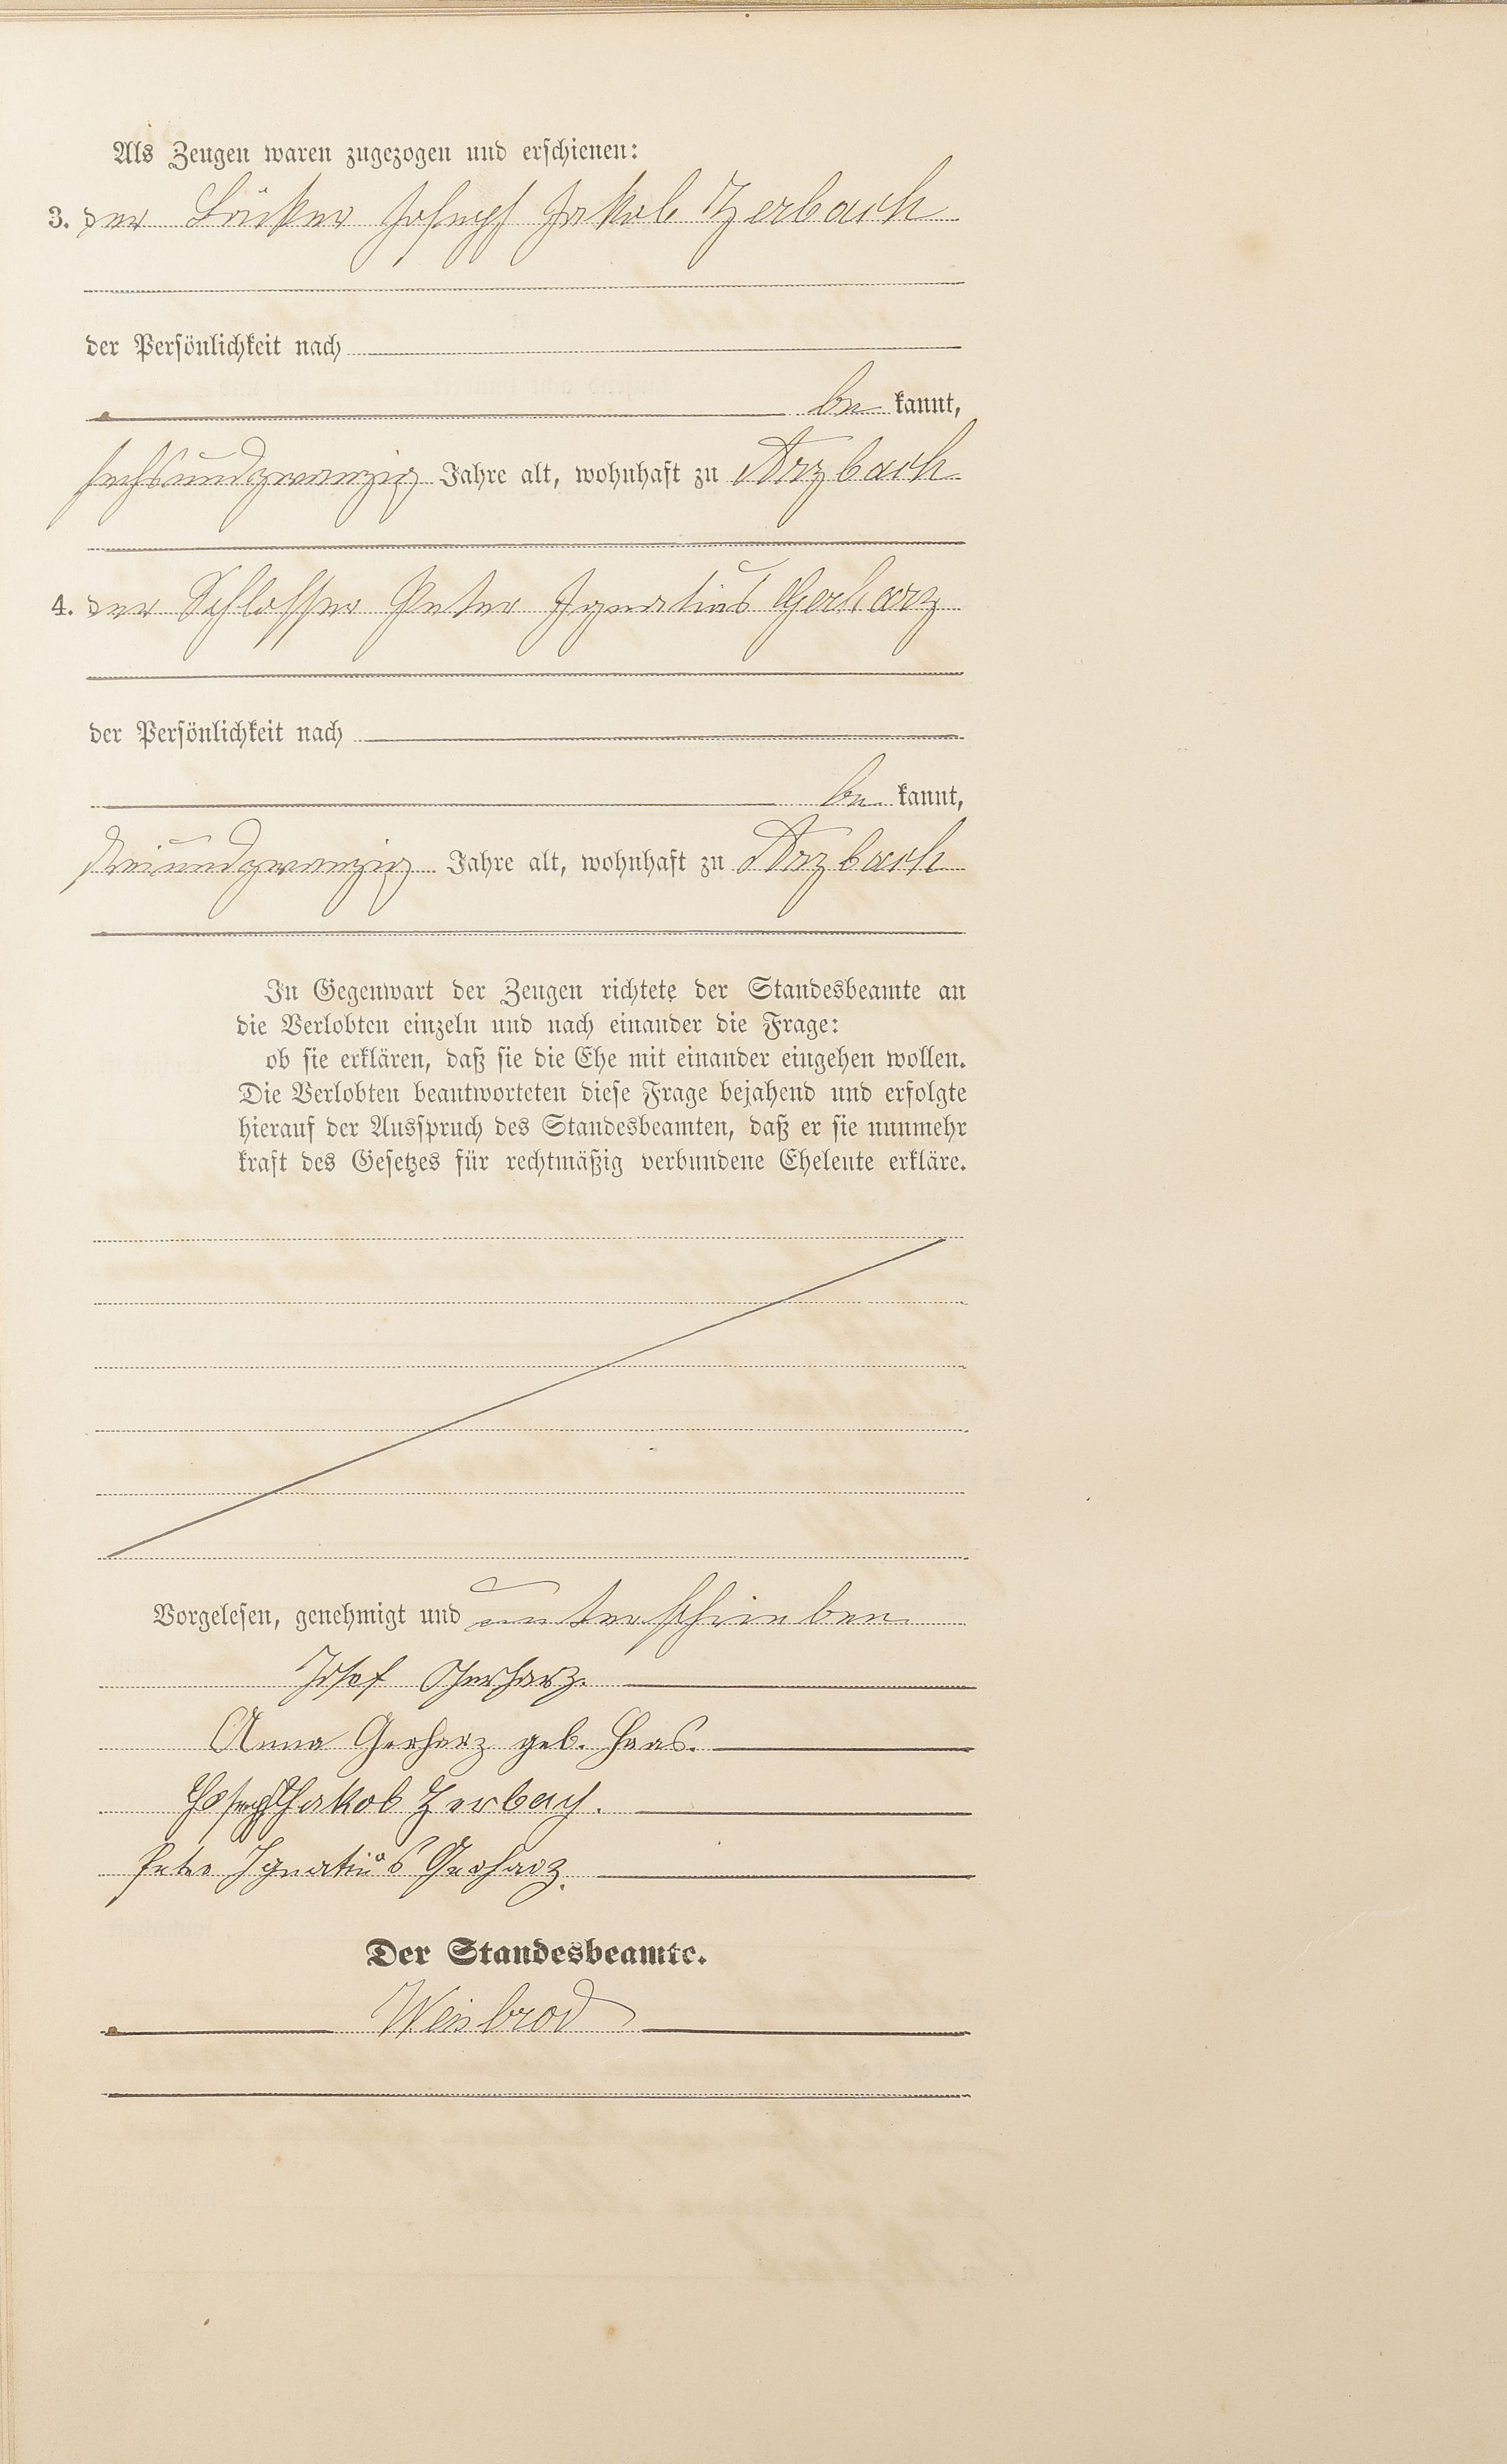 Als Zeugen waren zugezogen und erschienen:
3. der Bäcker Joseph Jakob Zerbach
der Persönlichkeit nach
be kannt,
sechsundzwanzig Jahre alt, wohnhaft zu Arzbach
4. der Schlosser Peter Ignatius Gerharz
der Persönlichkeit nach
be kannt,
dreiundzwanzig Jahre alt, wohnhaft zu Arzbach
In Gegenwart der Zeugen richtete der Standesbeamte an
die Verlobten einzeln und nach einander die Frage:
ob sie erklären, daß sie die Ehe mit einander eingehen wollen.
Die Verlobten beantworteten diese Frage bejahend und erfolgte
hierauf der Ausspruch des Standesbeamten, daß er sie nunmehr
kraft des Gesetzes für rechtmäßig verbundene Eheleute erkläre.
Vorgelesen, genehmigt und unterschrieben
Josef Gerharz.
Anna Gerharz geb. Haas.
Joseph Jakob Zerbach.
Peter Ignatius Gerharz.
Der Standesbeamte.
Weisbrod